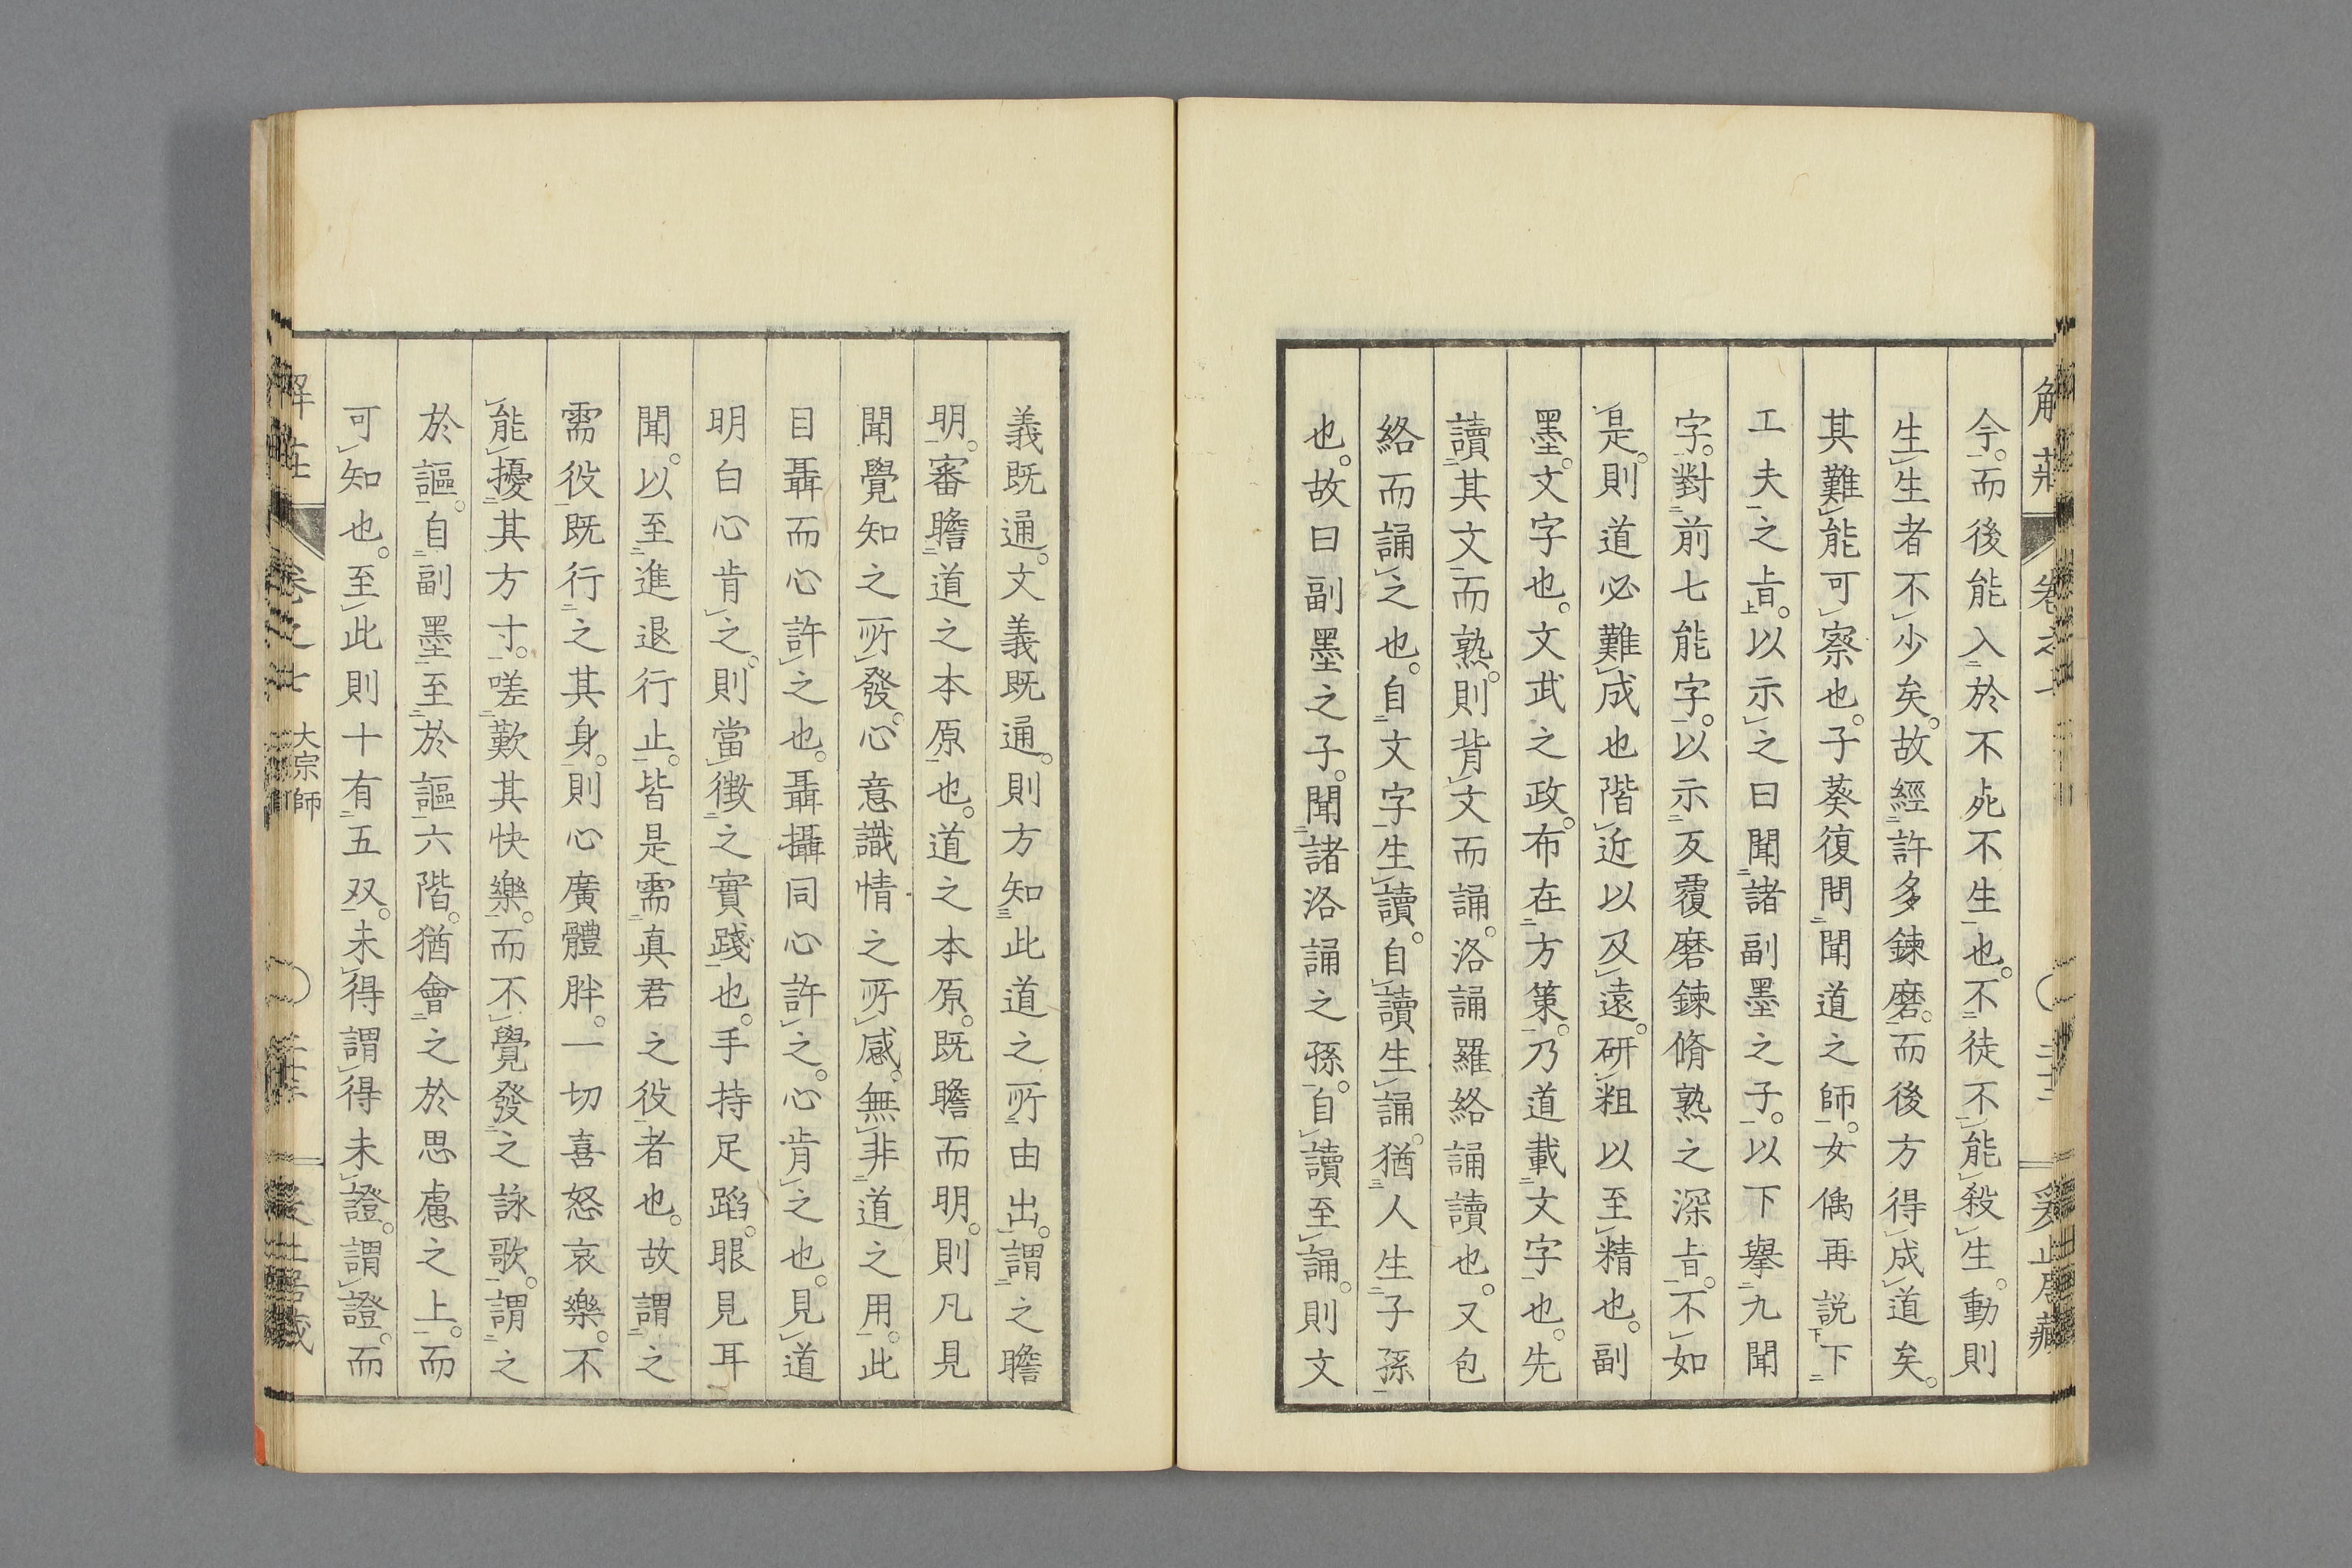 今。而後能入於不死不生也。不徒不能殺生。動則
生生者不少矣。故經許多鍊磨。而後方得成道矣。
其難能可察也。子葵復問聞道之師。女偊再説下
工夫之㫖。以示之曰聞諸副墨之子。以下擧九聞
字。對前七能字。以示反覆磨鍊脩熟之深㫖。不如
是。則道必難成也階近以及遠。研粗以至精也。副
墨。文字也。文武之政。布在方策。乃道載文字也。先
讀其文而熟。則背文而誦。洛誦羅絡誦讀也。又包
絡而誦之也。自文字生讀。自讀生誦。猶人生子孫
也。故曰副墨之子。聞諸洛誦之孫。自讀至誦。則文
義既通。文義既通。則方知此道之所由出。謂之瞻
明。審瞻道之本原也。道之本原。既瞻而明。則凡見
聞覺知之所發。心意識情之所感。無非道之用。此
目聶而心許之也。聶攝同心許之。心肯之也。見道
明白心肯之。則當徴之實踐也。手持足蹈。眼見耳
聞。以至進退行止。皆是需真君之役者也。故謂之
需役既行之其身。則心廣體胖。一切喜怒哀樂。不
能擾其方寸。嗟歎其快樂。而不覺發之詠歌。謂之
於謳。自副墨至於謳六階。猶會之於思慮之上。而
可知也。至此則十有五双。未得謂得未證。謂證。而
大宗師